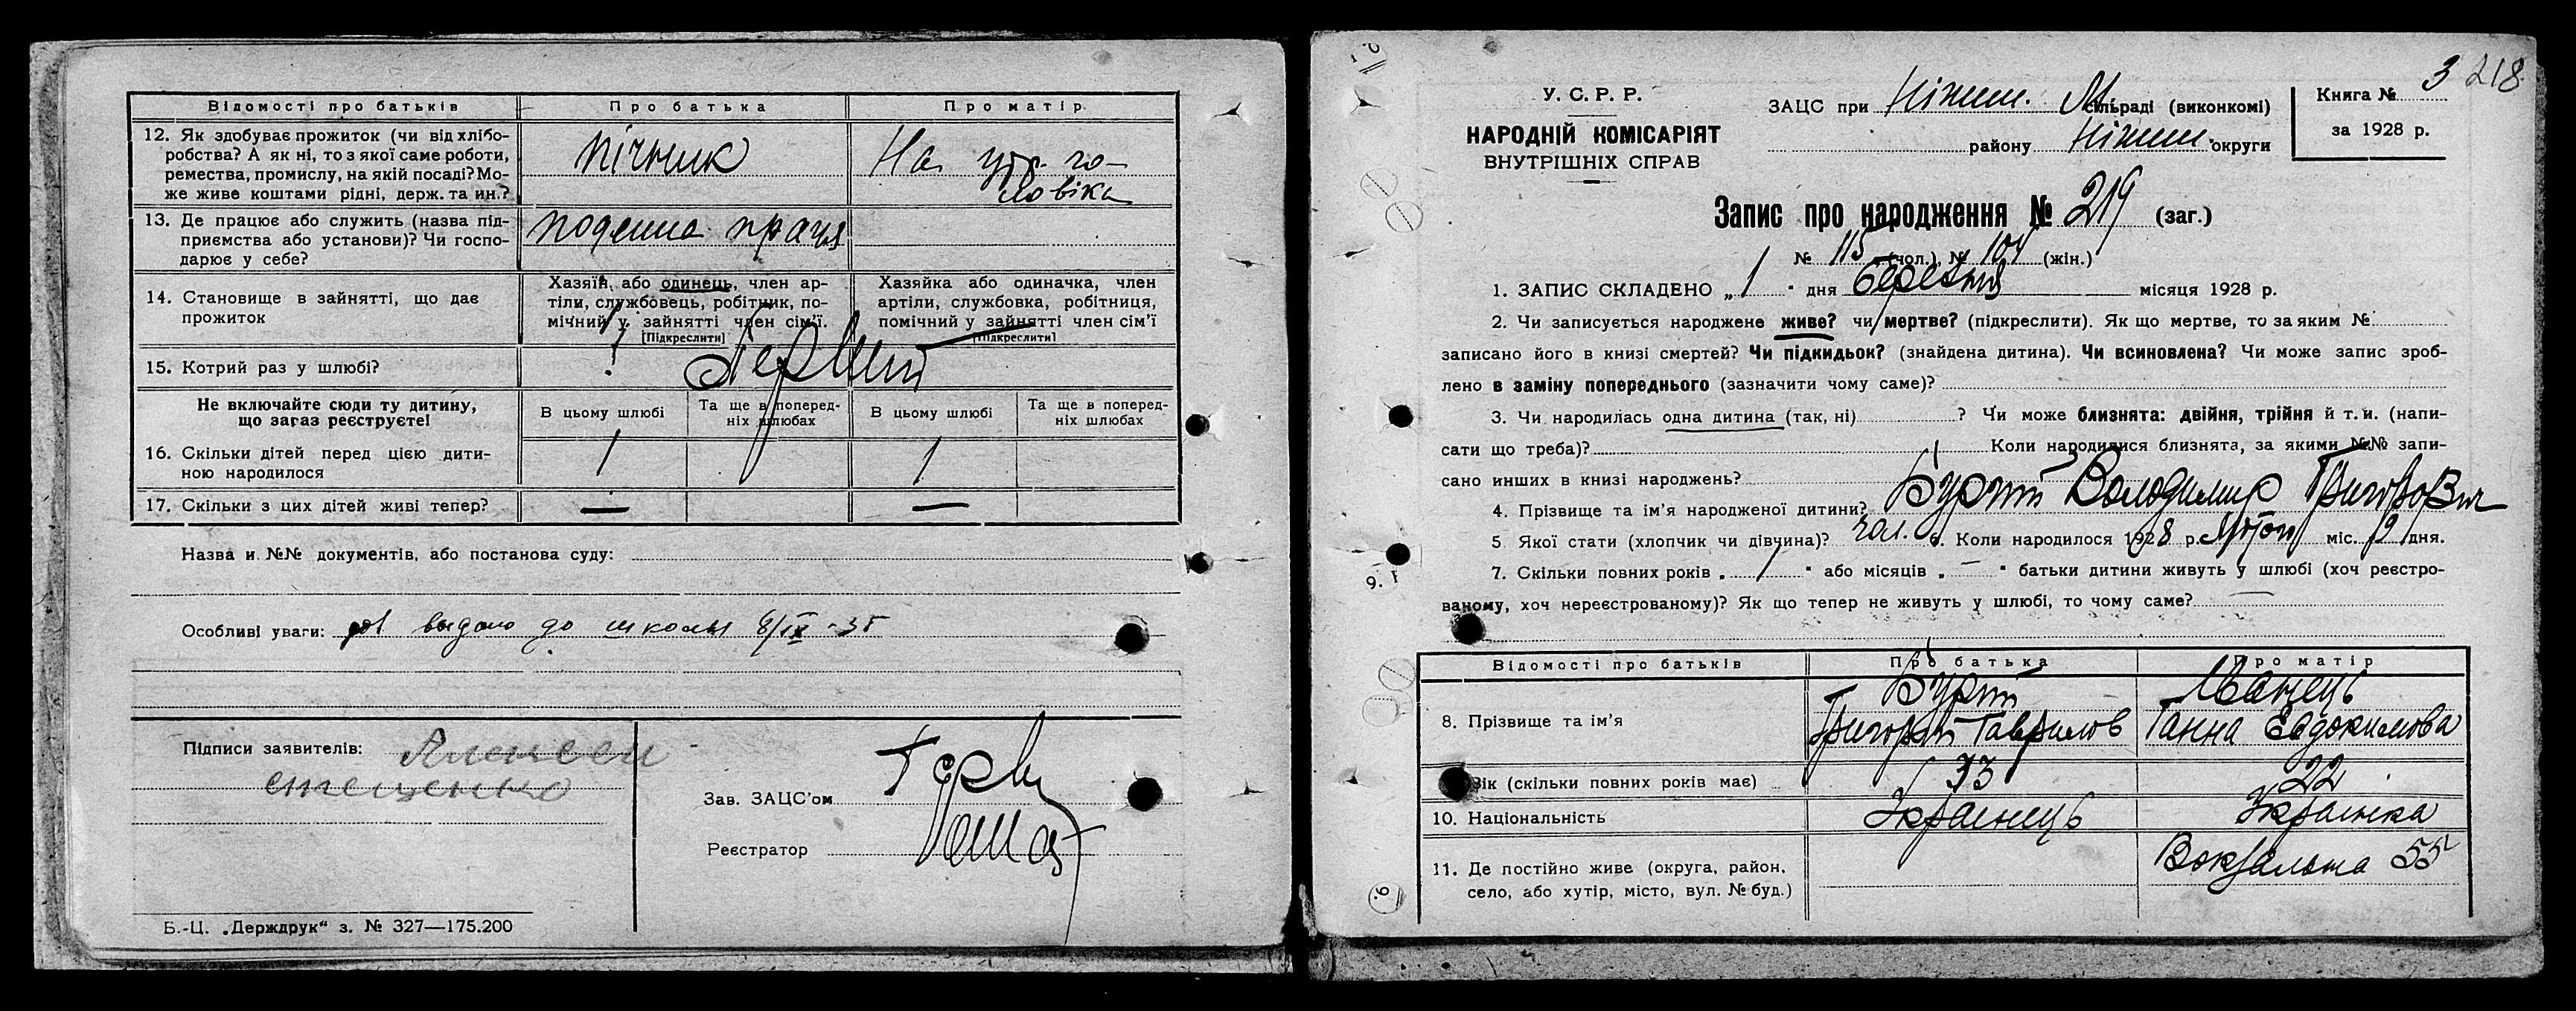 Відомості про батьків Про батька Про матір
12. Як здобуває прожиток (чи від хлібо-
робства? А як ні, то з якої саме роботи,
ремества, промислу, на якій посаді? Мо-
же живе коштами рідні, держ. та ин.?
пічник
На утр. чо-
ловіка
13. Де працює або служить (назва під-
приємства або установи)? Чи госпо-
дарює у себе?
поденна праця
14. Становище в зайнятті, що дає
прожиток
Хазяїн, або одинець, член ар-
тіли, службовець, робітник, по-
мічний у зайнятті член сім'ї.
[Підкреслити]
Хазяйка або одиначка, член
артіли, службовка, робітниця,
помічний у зайнятті член сім'ї
[Підкреслити]
15. Котрий раз у шлюбі?
Первий
Не включайте сюди ту дитину,
що зараз реєструєте!
В цьому шлюбі
Та ще в поперед-
ніх шлюбах
В цьому шлюбі
Та ще в поперед-
ніх шлюбах
16. Скільки дітей перед цією дити-
ною народилося
1 1
17. Скільки з цих дітей живі тепер?
— —
Назва и №№ документів, або постанова суду:
Особливі уваги: видано до школы 8/IX-35
Підписи заявителів: Алексей
Стещенко
Зав. ЗАЦС'ом
Реєстратор
Б.-Ц. „Держдрук“ з. № 327—175.200
3 218
У. С. Р. Р.
НАРОДНІЙ КОМІСАРІЯТ
ВНУТРІШНІХ СПРАВ
ЗАЦС при Ніжин. М. сільраді (виконкомі)
району Ніжин. округи
Книга №
за 1928 р.
Запис про народження № 219 (заг.)
№ 115 (чол.), № 104 (жін.)
1. ЗАПИС СКЛАДЕНО „1“ дня березня місяця 1928 р.
2. Чи записується народжене живе? чи мертве? (підкреслити). Як що мертве, то за яким №
записано його в книзі смертей? Чи підкидьок? (знайдена дитина). Чи всиновлена? Чи може запис зроб-
лено в заміну попереднього (зазначити чому саме)?
3. Чи народилась одна дитина (так, ні) ? Чи може близнята: двійня, трійня й т. и. (напи-
сати що треба)? Коли народилися близнята, за якими №№ запи-
сано инших в книзі народжень?
4. Прізвище та ім'я народженої дитини? Бурт Володимир Григорович
5. Якої стати (хлопчик чи дівчина)? чол. 6. Коли народилося 1928 р. Лютого міс. 9 дня.
7. Скільки повних років „ 1 “ або місяців „ — “ батьки дитини живуть у шлюбі (хоч реєстро-
ваному, хоч нереєстрованому)? Як що тепер не живуть у шлюбі, то чому саме? —
Відомості про батьків Про батька Про матір
8. Прізвище та ім'я
Бурт
Григорій Гаврилов
Іванець
Ганна Евдокимова
Вік (скільки повних років має) 33 22
10. Національність Українець Українка
11. Де постійно живе (округа, район,
село, або хутір, місто, вул. № буд.)
Вокзальна 55